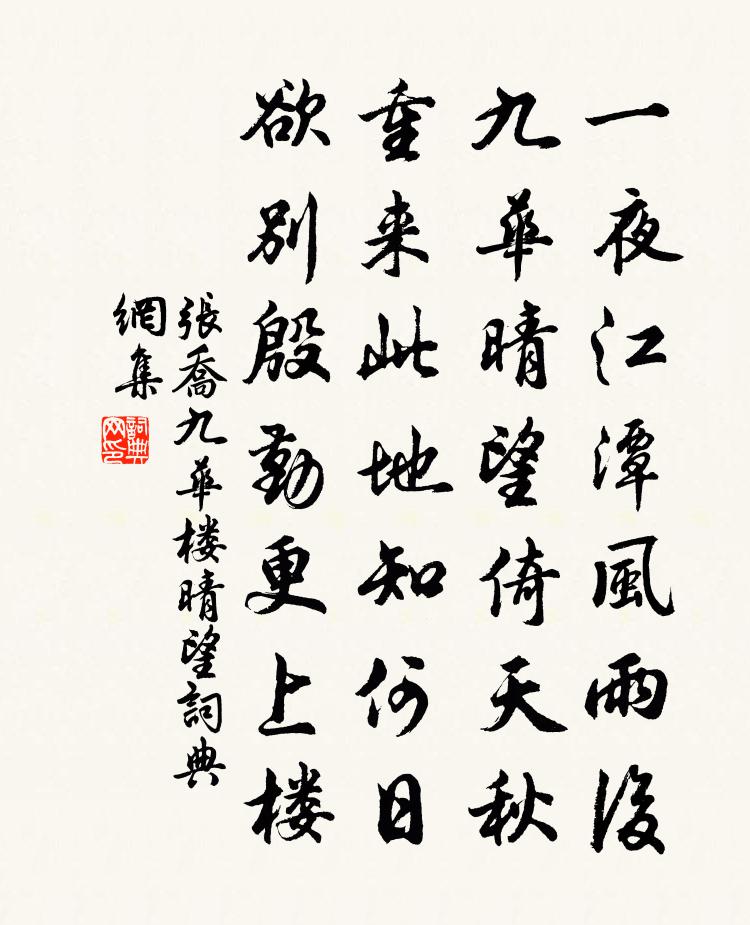 一夜江潭風雨後
九華晴望倚天秋
重来此地知何日
欲别殷勤更上楼
張喬九華楼晴望詞典
網集
詞典網印